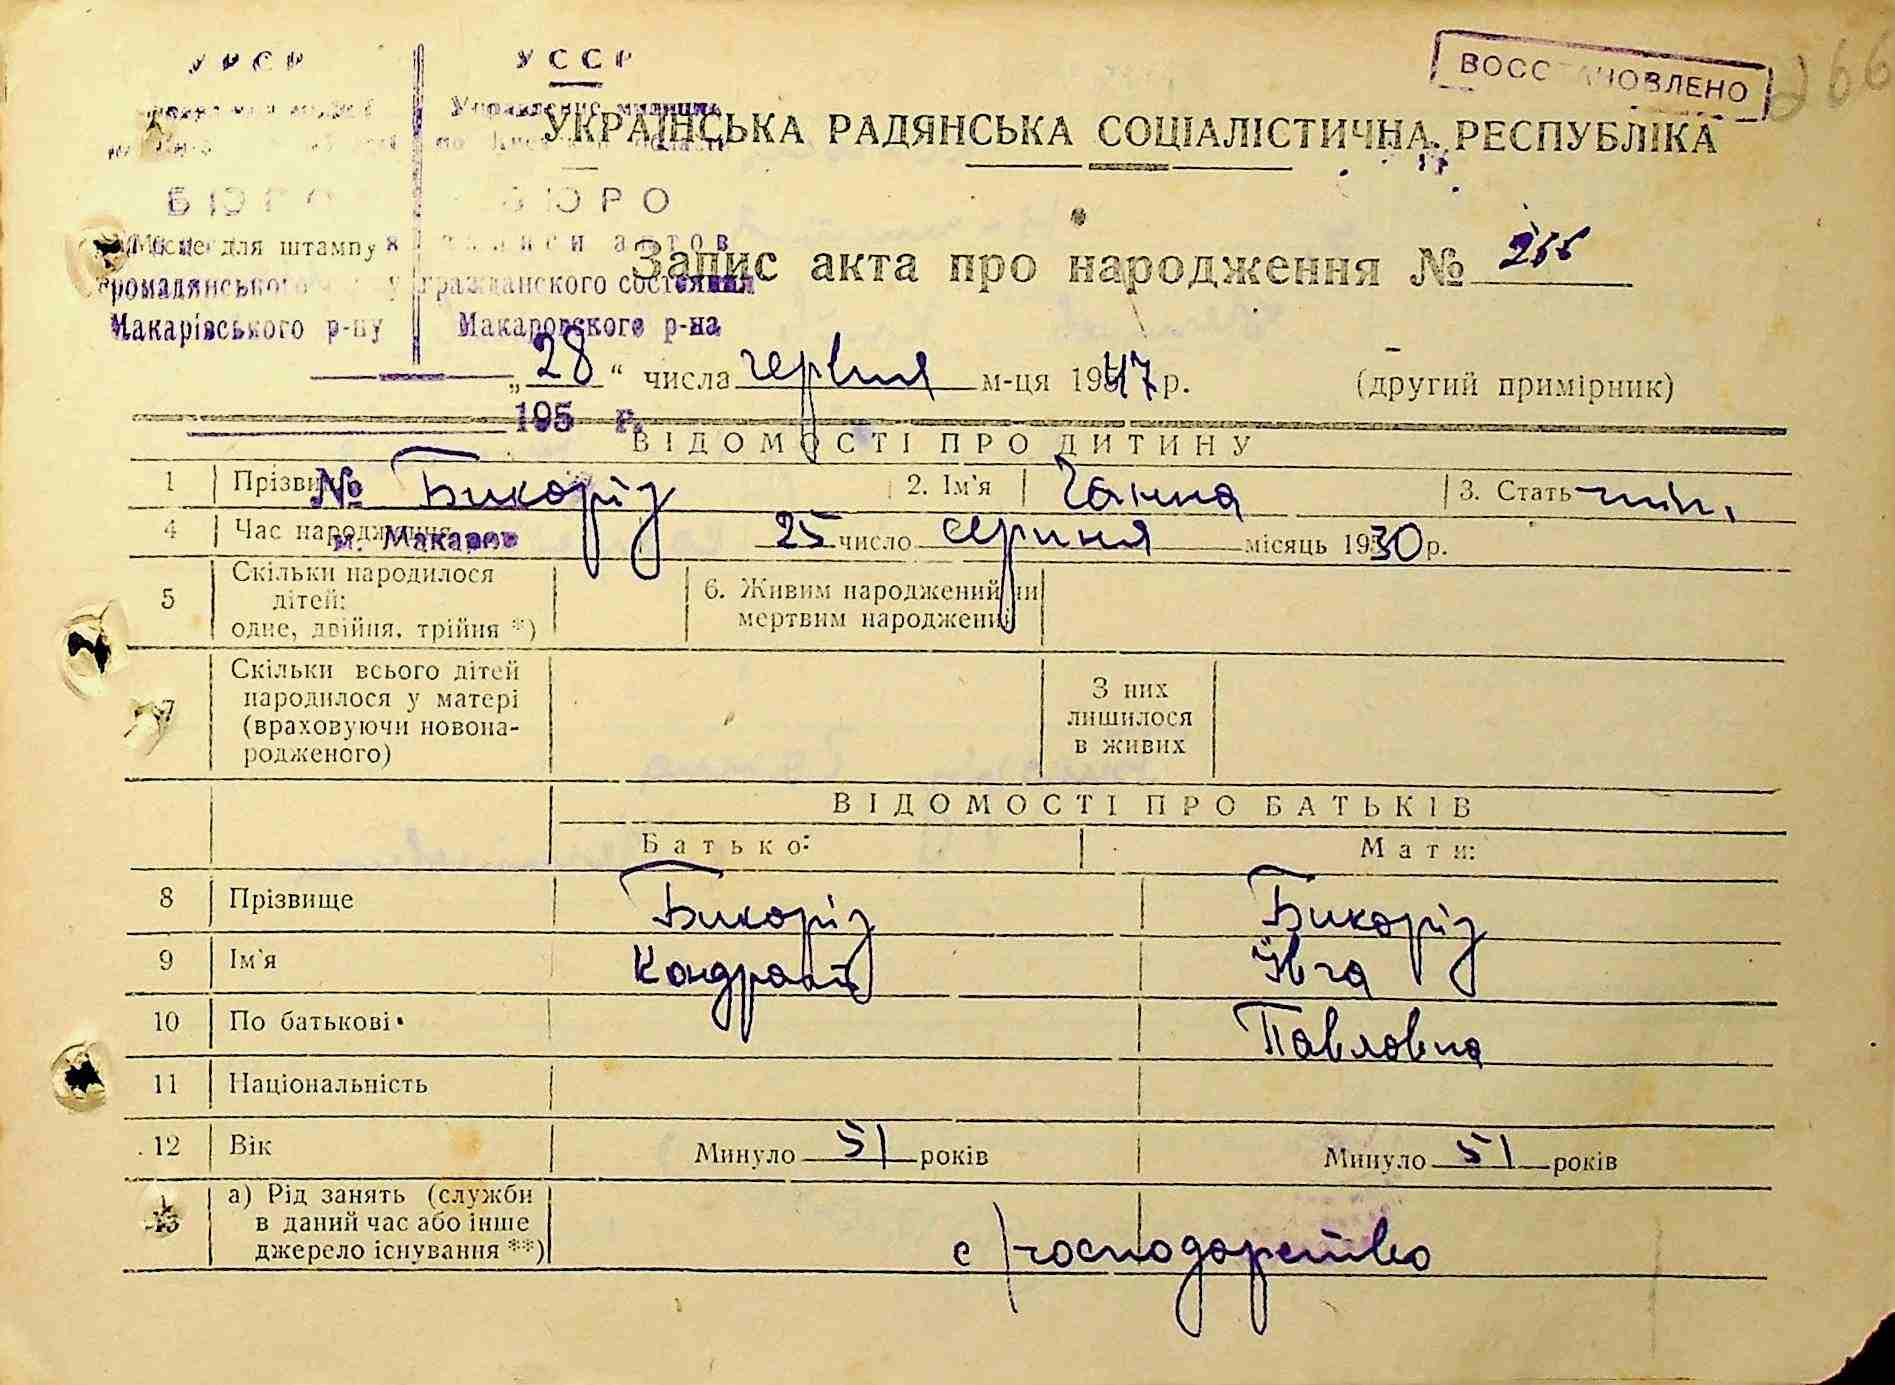 УРСР
УССР
ВОССТАНОВЛЕНО
266
Управление милиции
по Киевской области
УКРАЇНСЬКА РАДЯНСЬКА СОЦІАЛІСТИЧНА РЕСПУБЛІКА
БЮРО БЮРО
Місце для штампу
записи актов
Запис акта про народження № 266
громадянського
гражданского состояния
Макарівського р-ну
Макаровского р-на
„28“ числа червня м-ця 1947 р. (другий примірник)
195 г.
ВІДОМОСТІ ПРО ДИТИНУ
1 Прізвище Бикоріз 2. Ім'я Ганна 3. Стать жін.
№
4 Час народження 25 число серпня місяць 1930 р.
м. Макаров
5 Скільки народилося дітей: одне, двійня, трійня *)
6. Живим народжений чи мертвим народжений
7 Скільки всього дітей народилося у матері (враховуючи новона-родженого)
З них лишилося в живих
ВІДОМОСТІ ПРО БАТЬКІВ
Батько: Мати:
8 Прізвище Бикоріз Бикоріз
9 Ім'я Кондрат Ївга
10 По батькові Павловна
11 Національність
12 Вік Минуло 51 років Минуло 51 років
13 а) Рід занять (служби в даний час або інше джерело існування **)
с/господарство